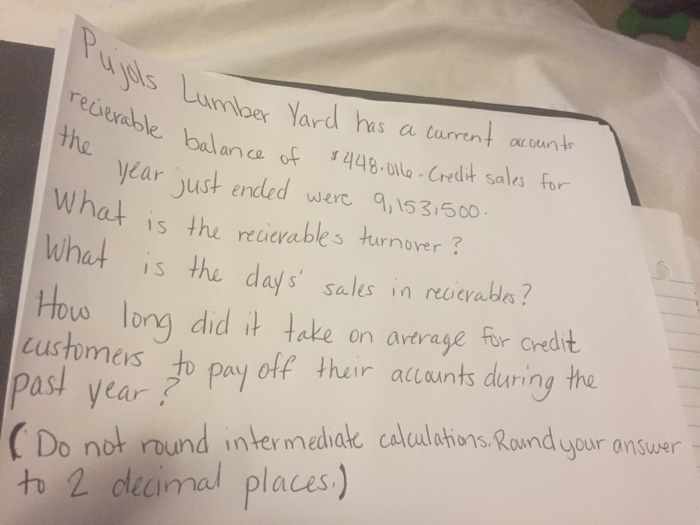 Pujols Lumber Yard has a current accounts
recierable balance of $448,016. Credit sales for
the year just ended were 9,153,500.
What is the recievables turnover?
What is the days' sales in recierables?
How long did it take on average for credit
customers to pay off their accounts during the
past year?
(Do not round intermediate calculations. Round your answer
to 2 decimal places.)